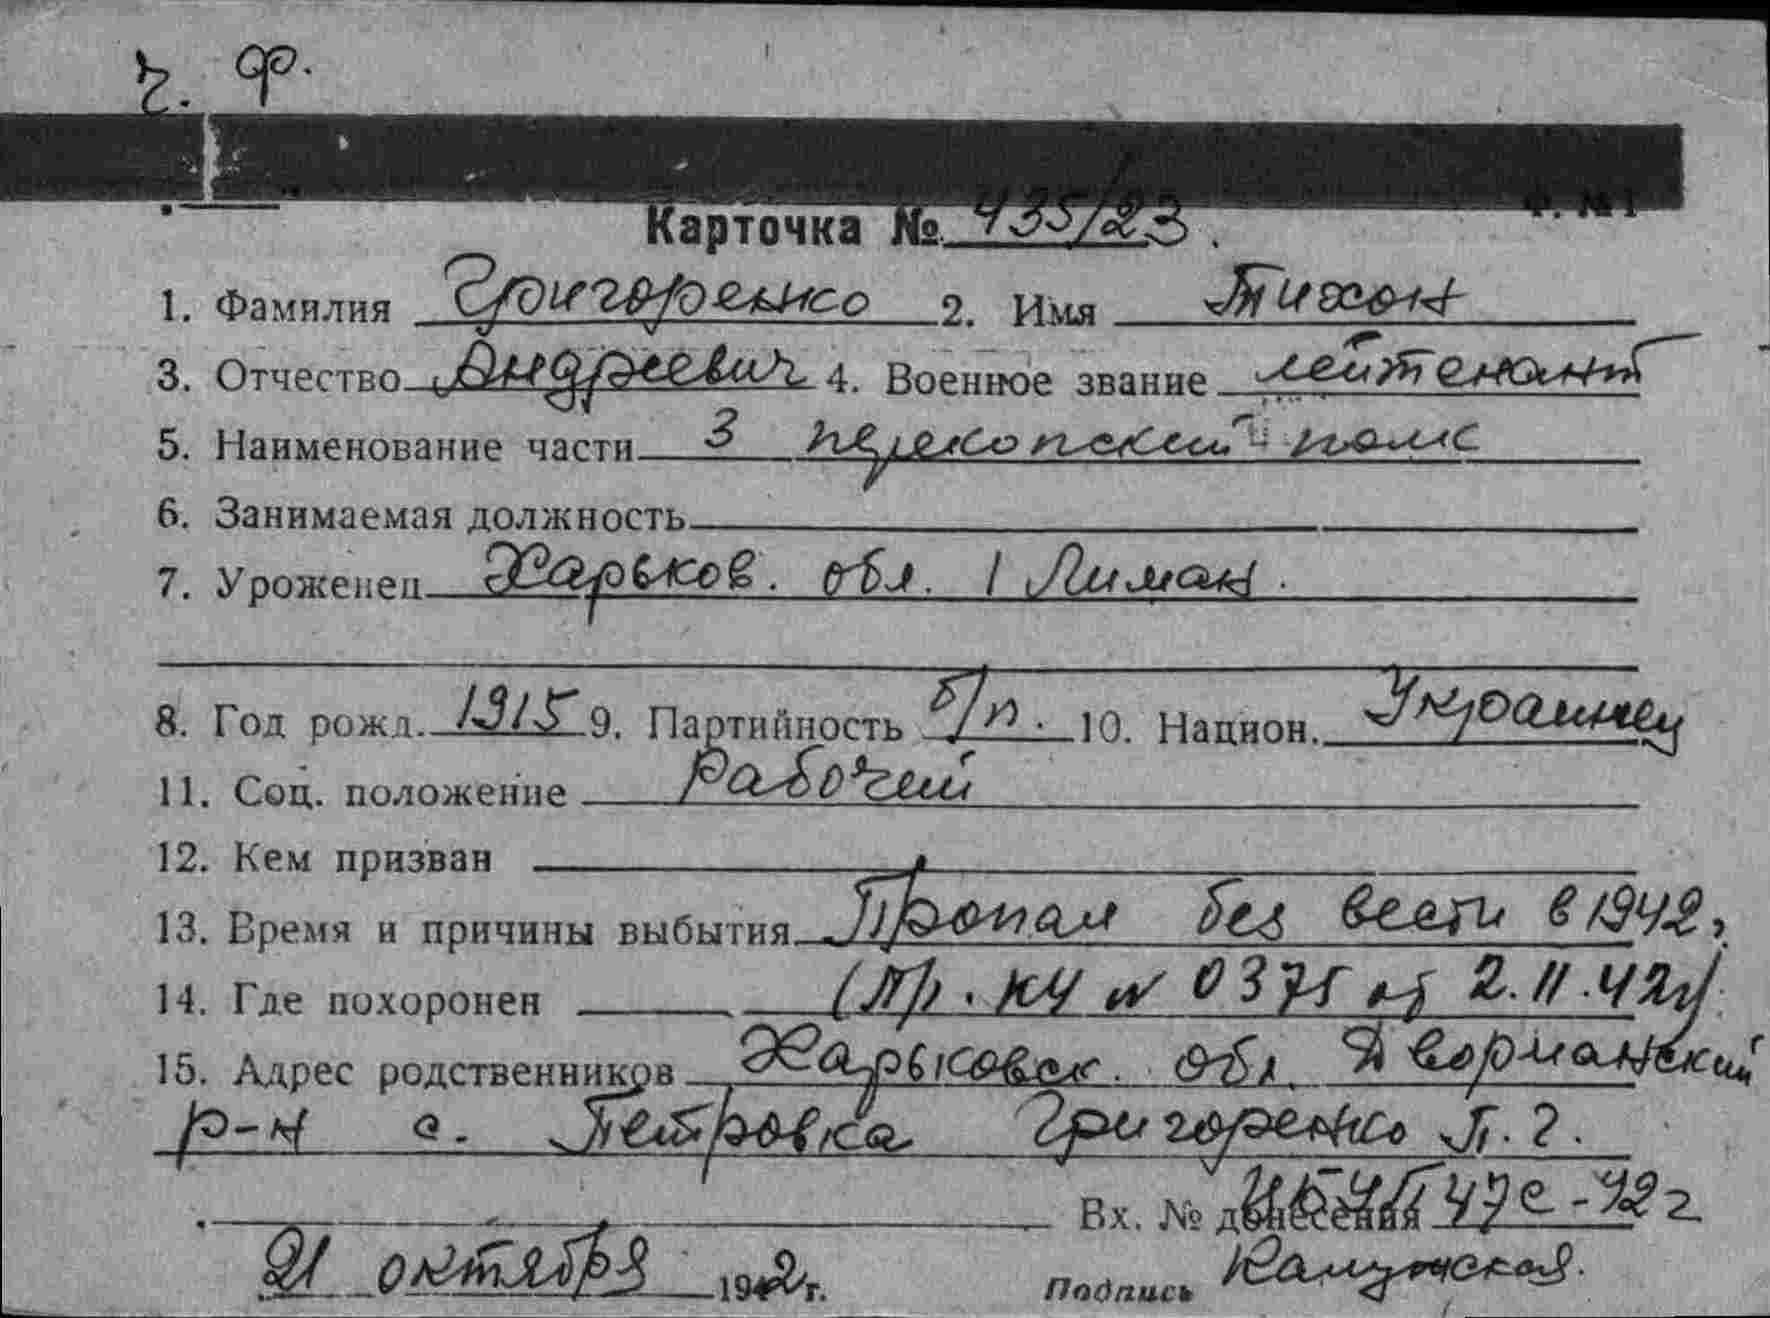 ч. ф.
Ф. № 1
Карточка № 435/23.
1. Фамилия Григоренко 2. Имя Тихон
3. Отчество Андреевич 4. Военное звание лейтенант
5. Наименование части 3 перекопский полк
6. Занимаемая должность
7. Уроженец Харьков. обл. Лиман.
8. Год рожд. 1915 9. Партийность б/п. 10. Национ. Украинец
11. Соц. положение Рабочий
12. Кем призван
13. Время и причины выбытия Пропал без вести в 1942г
14. Где похоронен (Пр. КЧ № 0375 от 2.11.42г).
15. Адрес родственников Харьковск. обл. Дворчанский
р-н с. Петровка Григоренко П. Г.
Вх. № донесения 47с-42г
21 октября 1942г.
Подпись